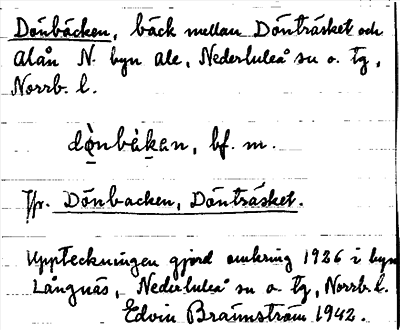 Dönbäcken, bäck mellan Dönträsket och
Alån N. byn Ale, Nederluleå sn o. tg,
Norrb. l.
dö̀nbäken, bf. m.
Jfr. Dönbacken, Dönträsket.
Uppteckningen gjord omkring 1926 i byn
Långnäs, Nederluleå sn o. tg, Norrb. l.
Edvin Brännström 1942.